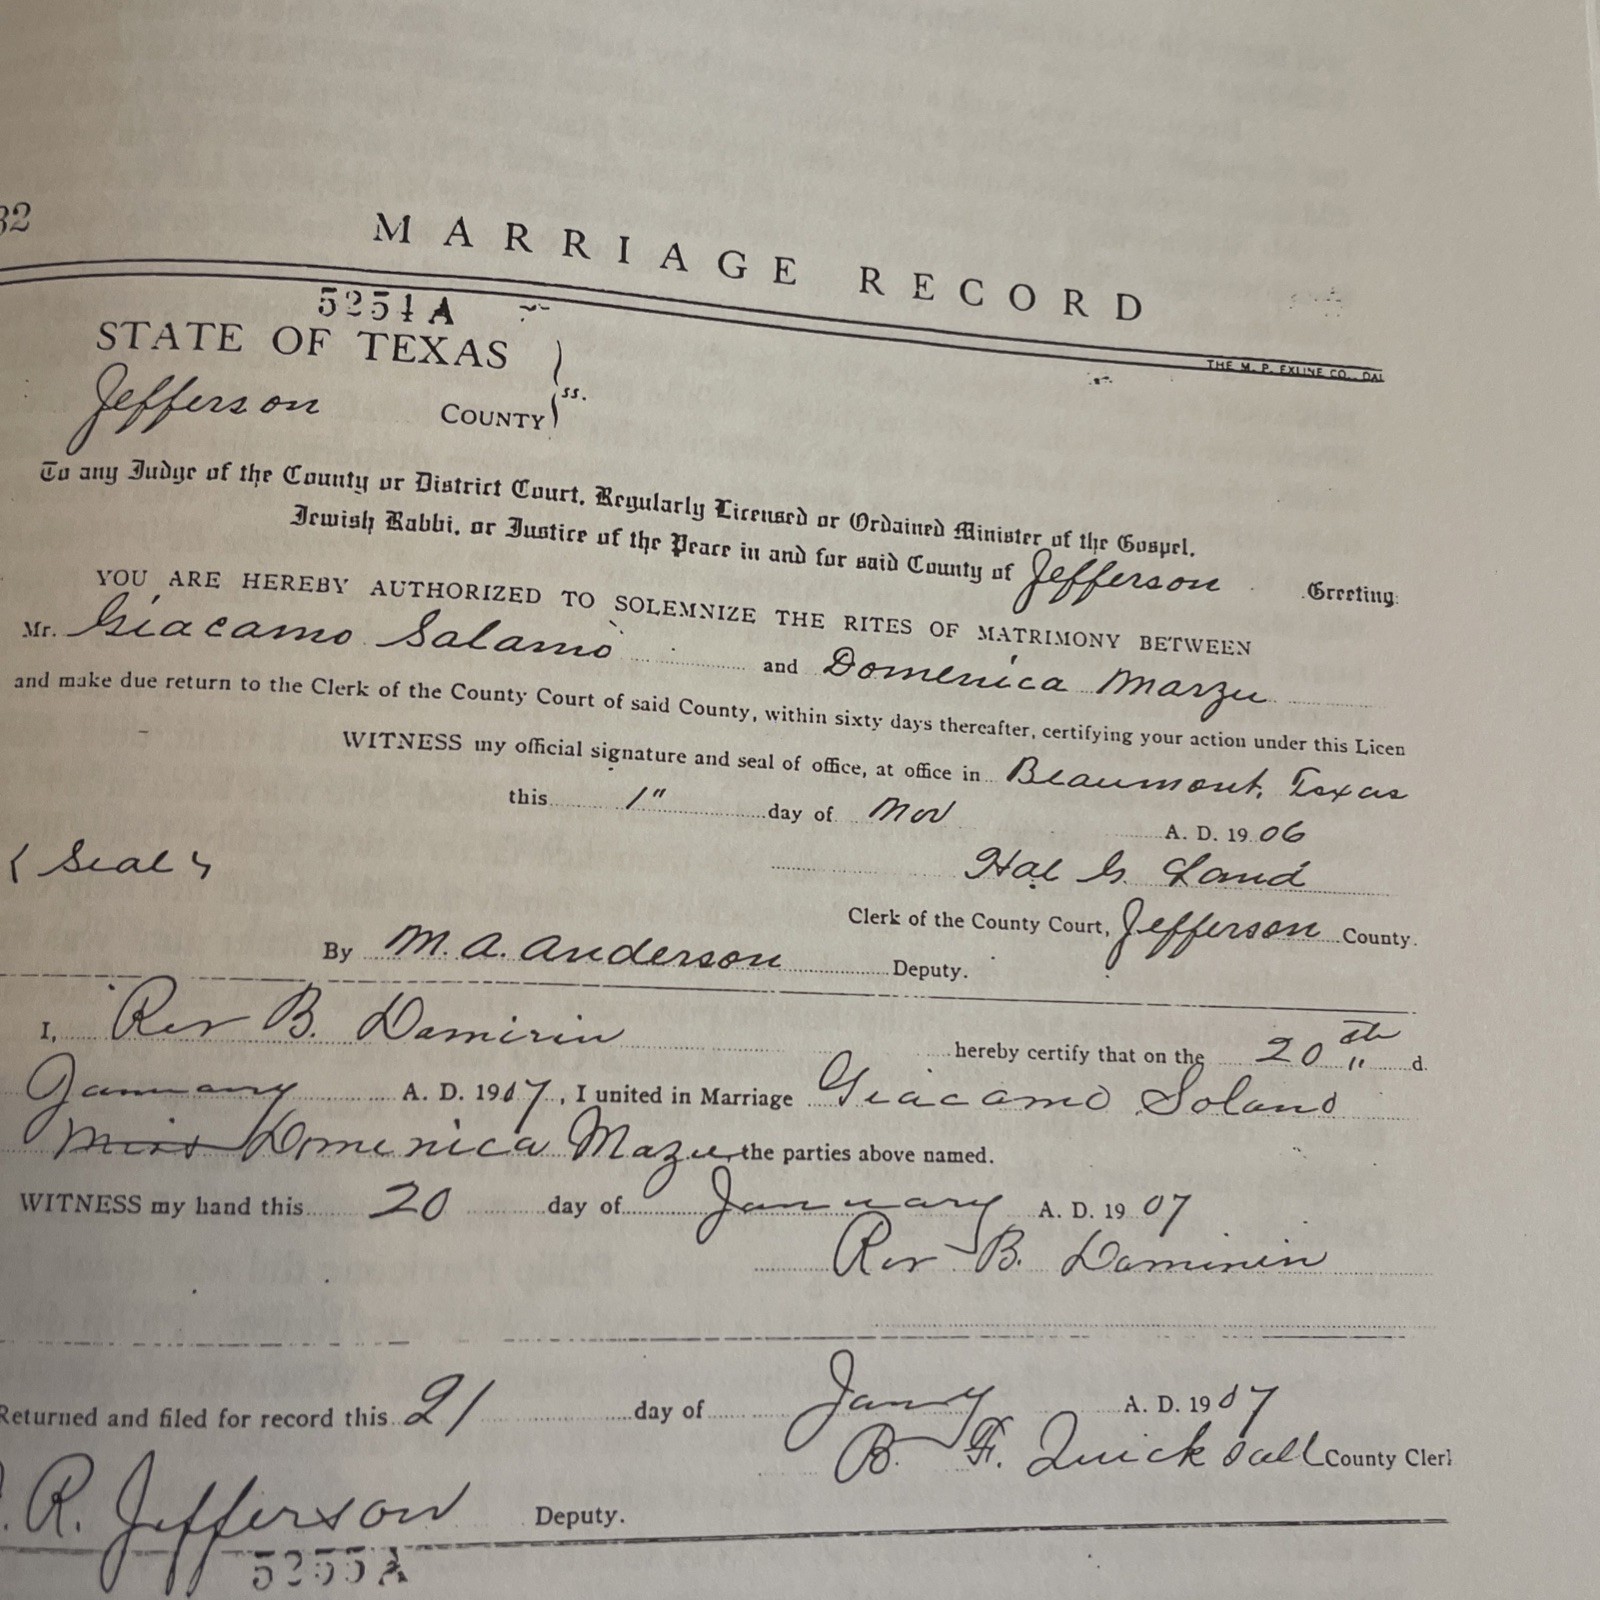 32
MARRIAGE RECORD
THE M. P. EXLINE CO., DAL
5254 A
STATE OF TEXAS
ss.
Jefferson COUNTY
To any Judge of the County or District Court, Regularly Licensed or Ordained Minister of the Gospel,
Jewish Rabbi, or Justice of the Peace in and for said County of Jefferson Greeting:
YOU ARE HEREBY AUTHORIZED TO SOLEMNIZE THE RITES OF MATRIMONY BETWEEN
Mr. Giacamo Salamo and Domenica Marzu
and make due return to the Clerk of the County Court of said County, within sixty days thereafter, certifying your action under this Licen
WITNESS my official signature and seal of office, at office in Beaumont, Texas
this 1" day of Nov A. D. 1906
{Seal} Hal G. Land
Clerk of the County Court, Jefferson County.
By M. A. Anderson Deputy.
I, Rev B. Damirin hereby certify that on the 20th d
January A. D. 1907, I united in Marriage Giacamo Solano
Miss Domenica Mazu the parties above named.
WITNESS my hand this 20 day of January A. D. 1907
Rev B. Daminin
Returned and filed for record this 21 day of Jany A. D. 1907
B. F. Quicksall County Clerk
. R. Jefferson Deputy.
5255 A